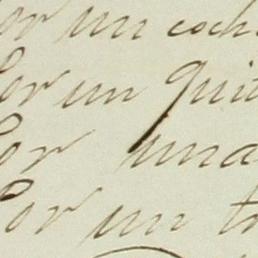 Por un coch
Por un Quit
Por una
Por un